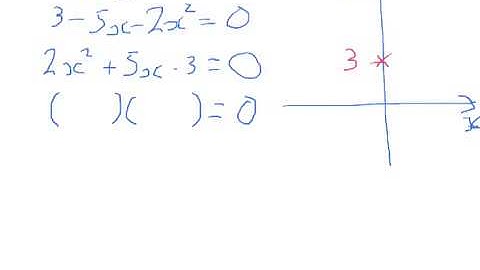 3 - 5x - 2x² = 0
2x² + 5x · 3 = 0
(    )(    ) = 0
3
x